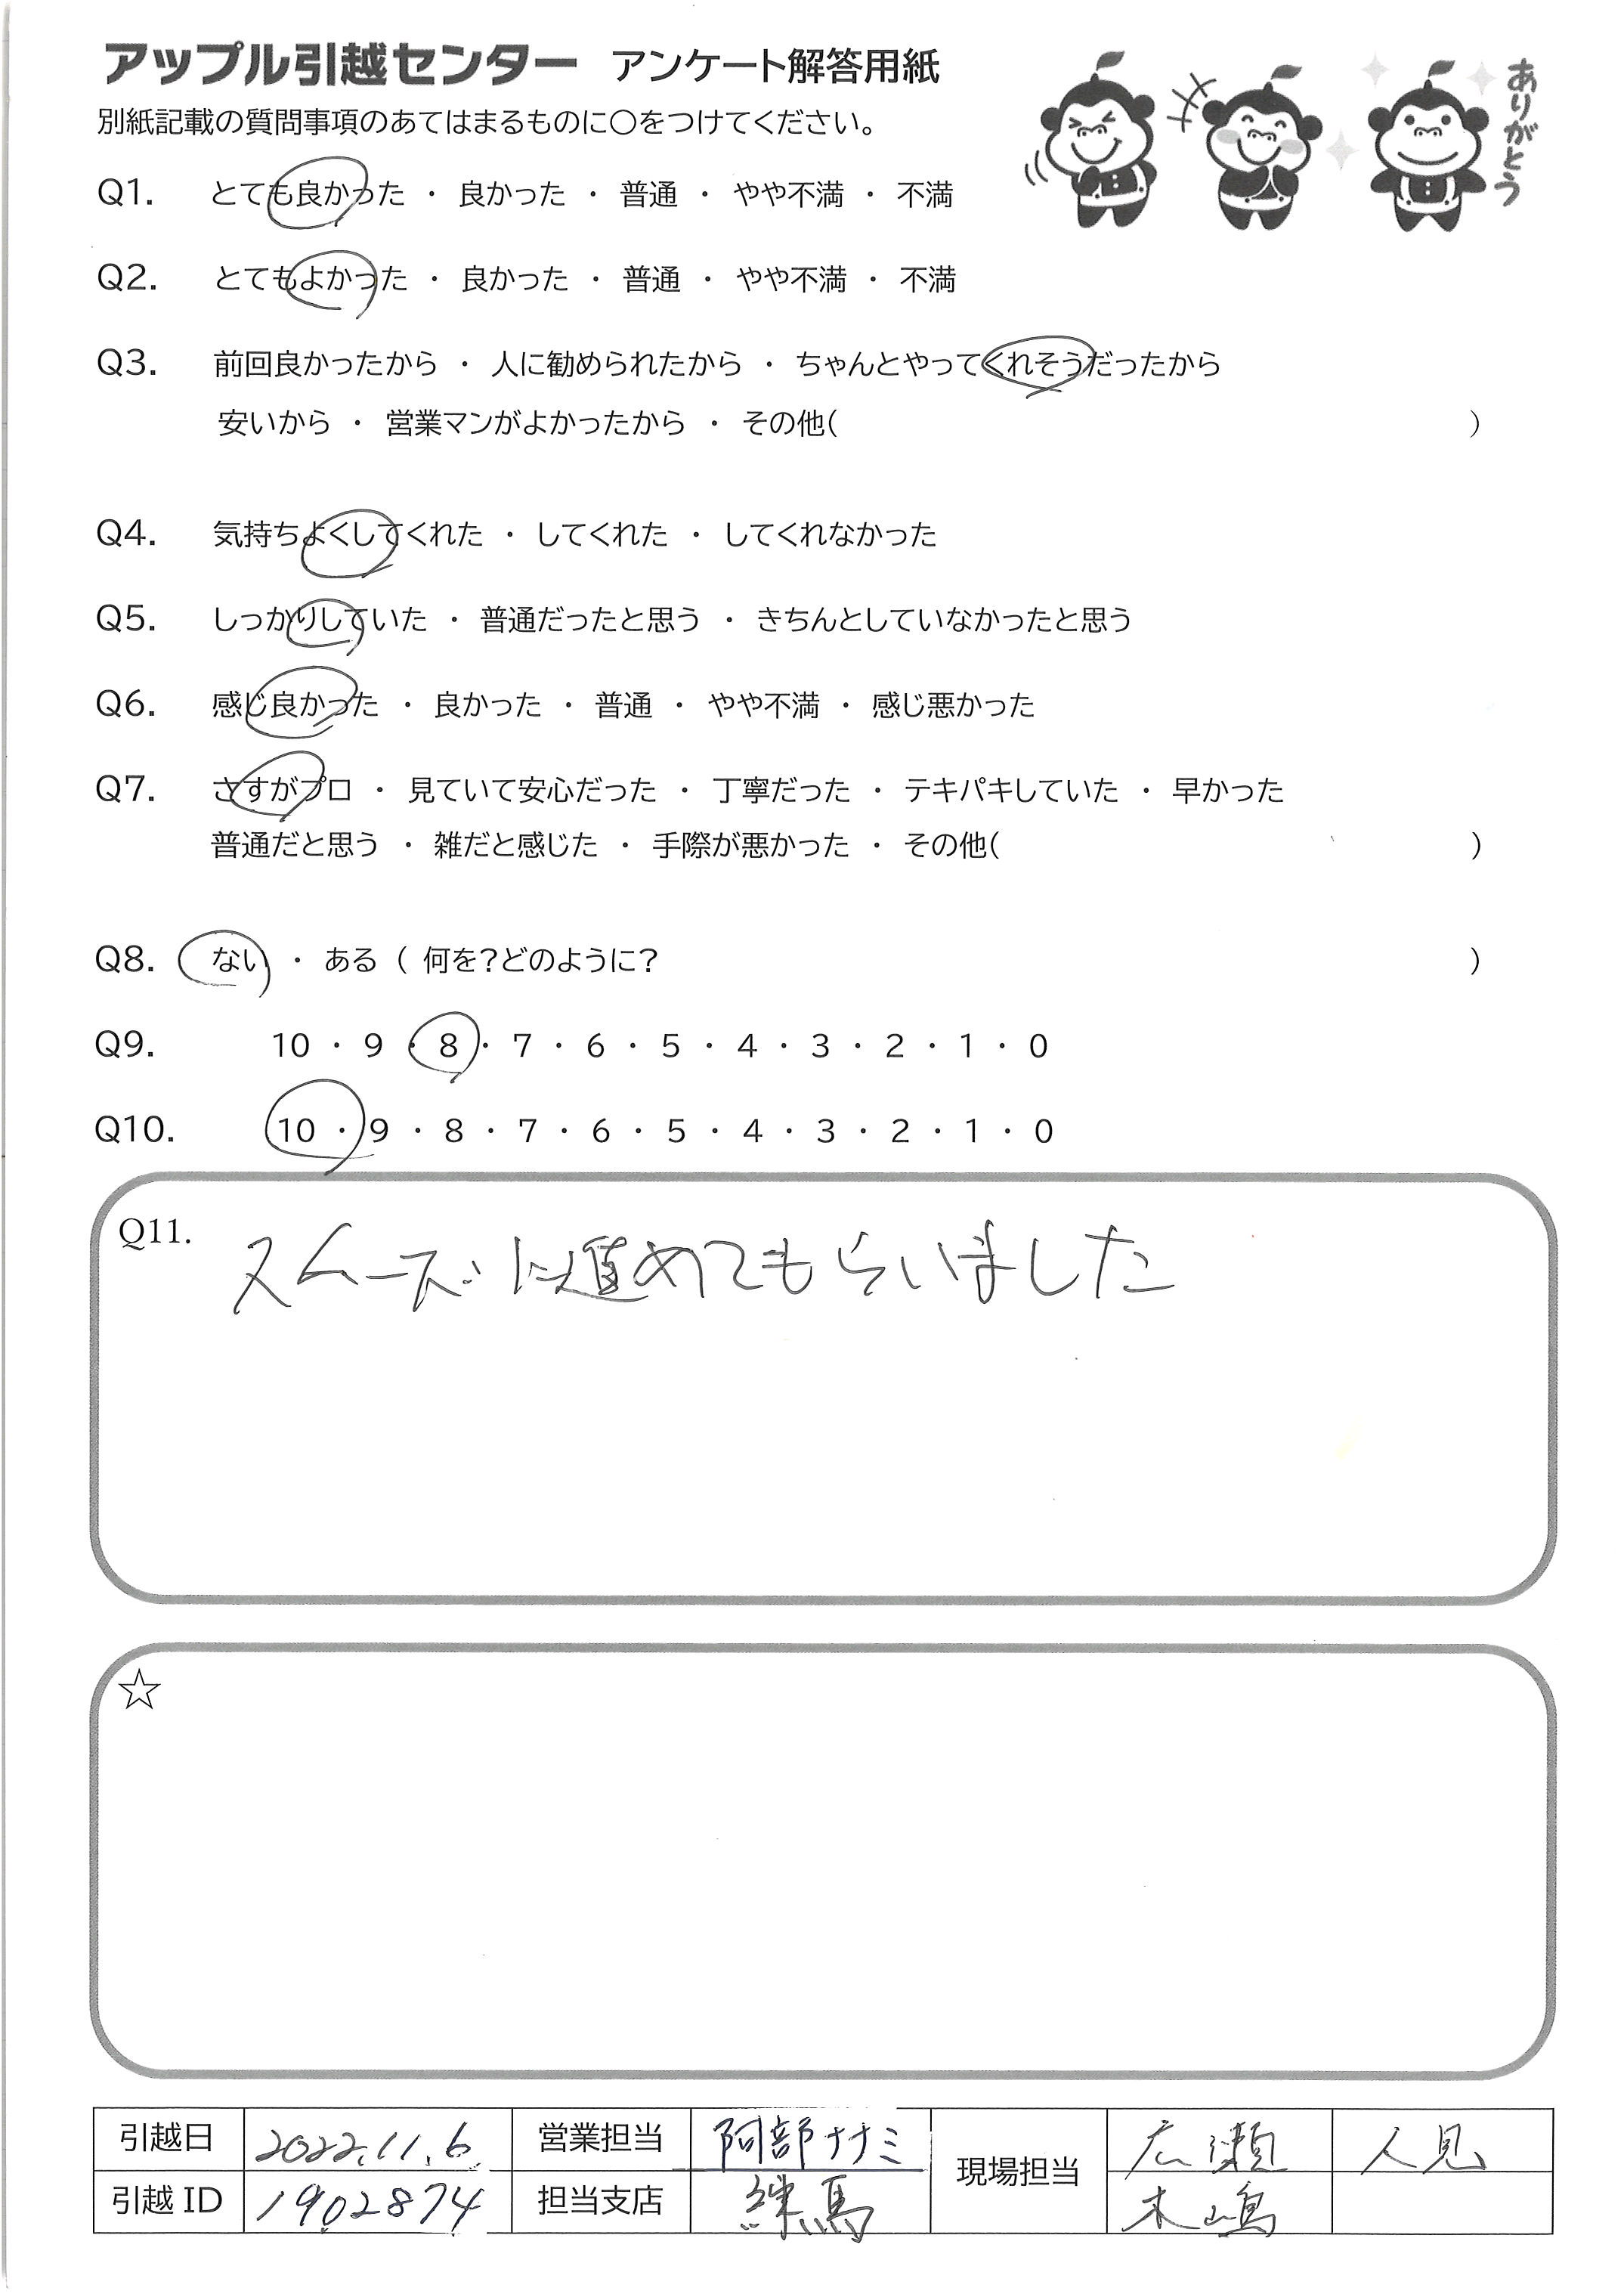 アップル引越センター アンケート解答用紙
ありがとう
別紙記載の質問事項のあてはまるものに〇をつけてください。
Q1. とても良かった ・ 良かった ・ 普通 ・ やや不満 ・ 不満
Q2. とてもよかった ・ 良かった ・ 普通 ・ やや不満 ・ 不満
Q3. 前回良かったから ・ 人に勧められたから ・ ちゃんとやってくれそうだったから
安いから ・ 営業マンがよかったから ・ その他( )
Q4. 気持ちよくしてくれた ・ してくれた ・ してくれなかった
Q5. しっかりしていた ・ 普通だったと思う ・ きちんとしていなかったと思う
Q6. 感じ良かった ・ 良かった ・ 普通 ・ やや不満 ・ 感じ悪かった
Q7. さすがプロ ・ 見ていて安心だった ・ 丁寧だった ・ テキパキしていた ・ 早かった
普通だと思う ・ 雑だと感じた ・ 手際が悪かった ・ その他( )
Q8. ない ・ ある ( 何を?どのように? )
Q9. 10 ・ 9 ・ 8 ・ 7 ・ 6 ・ 5 ・ 4 ・ 3 ・ 2 ・ 1 ・ 0
Q10. 10 ・ 9 ・ 8 ・ 7 ・ 6 ・ 5 ・ 4 ・ 3 ・ 2 ・ 1 ・ 0
Q11. スムーズに進めてもらいました
☆
引越日 2022.11.6 営業担当 阿部ナナミ 現場担当 広瀬 人見
引越 ID 1902874 担当支店 練馬 木嶋